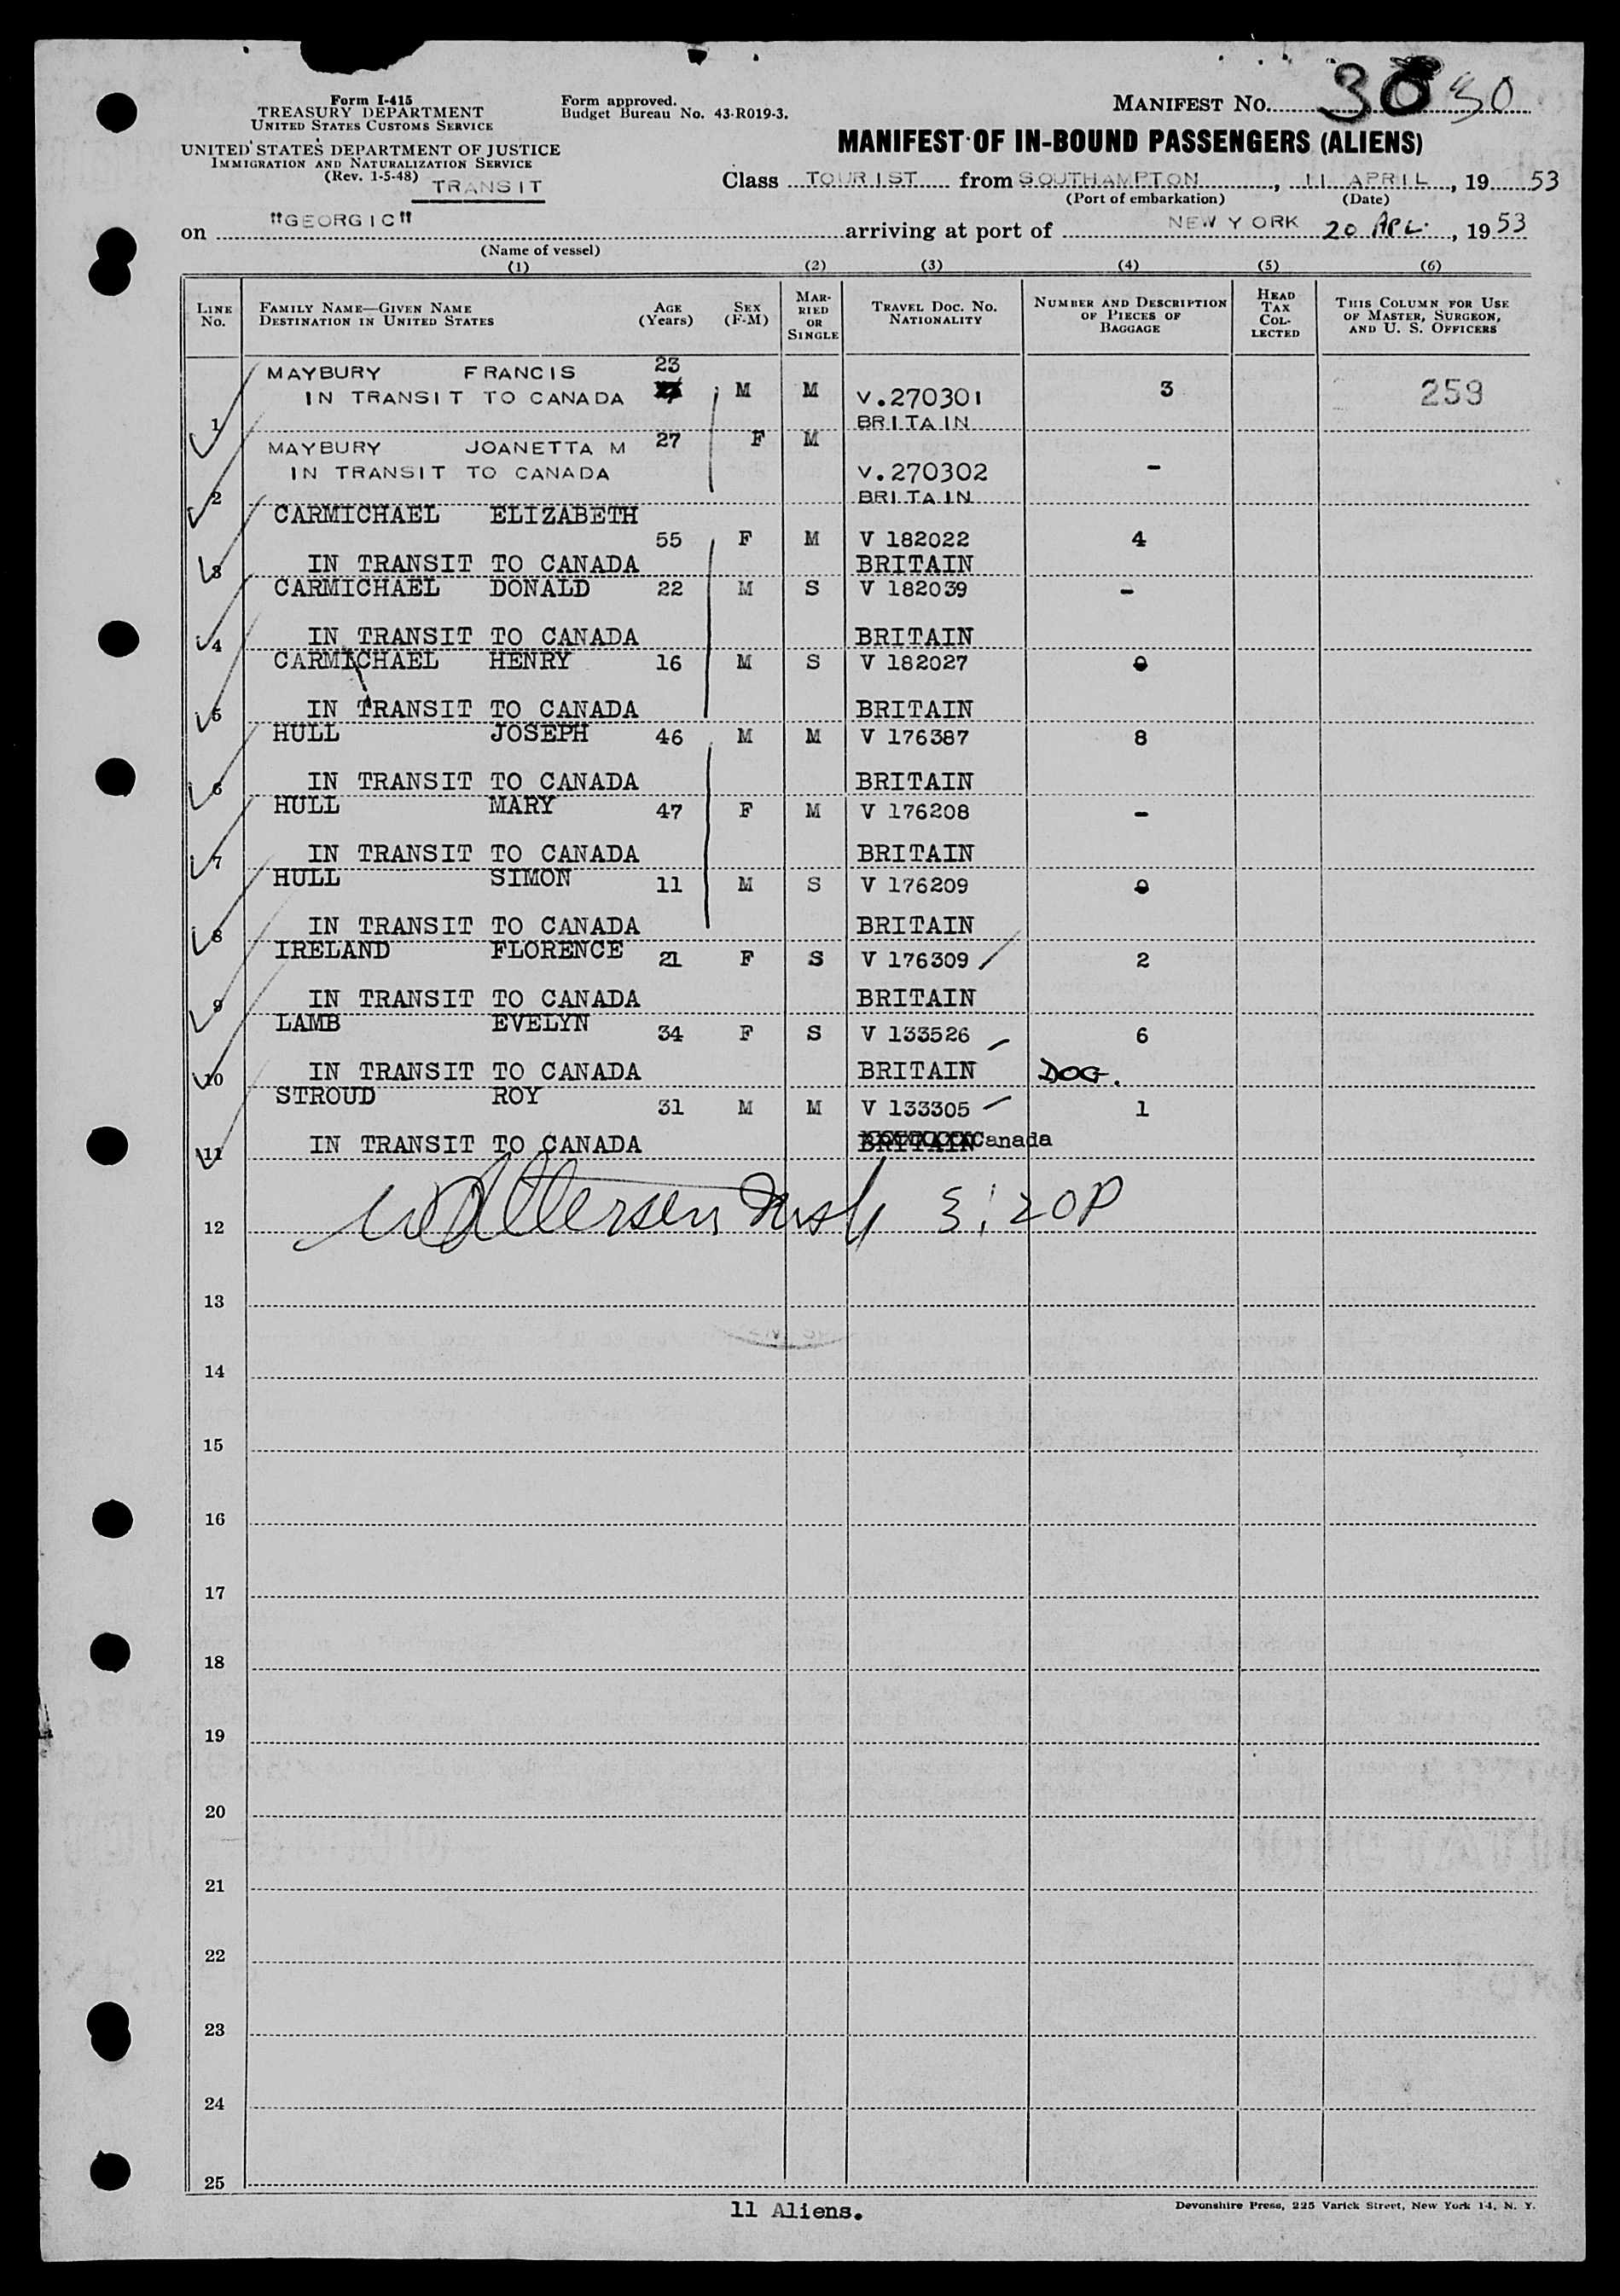 Form I-415
TREASURY DEPARTMENT
UNITED STATES CUSTOMS SERVICE
UNITED STATES DEPARTMENT OF JUSTICE
IMMIGRATION AND NATURALIZATION SERVICE
(Rev. 1-5-48)
TRANSIT
Form approved.
Budget Bureau No. 43-R019-3.
MANIFEST NO. 30 30
MANIFEST OF IN-BOUND PASSENGERS (ALIENS)
Class TOURIST from SOUTHAMPTON, 11 APRIL, 1953
(Port of embarkation) (Date)
on "GEORGIC" arriving at port of NEW YORK 20 APL., 1953
(Name of vessel)
(1) (2) (3) (4) (5) (6)
LINE NO. FAMILY NAME—GIVEN NAME DESTINATION IN UNITED STATES AGE (Years) SEX (F-M) MARRIED OR SINGLE TRAVEL DOC. NO. NATIONALITY NUMBER AND DESCRIPTION OF PIECES OF BAGGAGE HEAD TAX COLLECTED THIS COLUMN FOR USE OF MASTER, SURGEON, AND U. S. OFFICERS
MAYBURY FRANCIS 23
IN TRANSIT TO CANADA M M V.270301 3 259
1 BRITAIN
MAYBURY JOANETTA M 27 F M
IN TRANSIT TO CANADA V.270302 -
2 BRITAIN
CARMICHAEL ELIZABETH
55 F M V 182022 4
3 IN TRANSIT TO CANADA BRITAIN
CARMICHAEL DONALD 22 M S V 182039 -
4 IN TRANSIT TO CANADA BRITAIN
CARMICHAEL HENRY 16 M S V 182027
5 IN TRANSIT TO CANADA BRITAIN
HULL JOSEPH 46 M M V 176387 8
6 IN TRANSIT TO CANADA BRITAIN
HULL MARY 47 F M V 176208 -
7 IN TRANSIT TO CANADA BRITAIN
HULL SIMON 11 M S V 176209
8 IN TRANSIT TO CANADA BRITAIN
IRELAND FLORENCE 21 F S V 176309 2
9 IN TRANSIT TO CANADA BRITAIN
LAMB EVELYN 34 F S V 133526 6
10 IN TRANSIT TO CANADA BRITAIN DOG.
STROUD ROY 31 M M V 133305 1
11 IN TRANSIT TO CANADA BRITAIN Canada
12
13
14
15
16
17
18
19
20
21
22
23
24
25
11 Aliens.
Devonshire Press, 225 Varick Street, New York 14, N. Y.